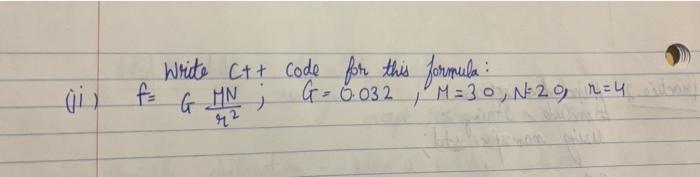 Write C++ code for this formula:
(ii) f= G MN/r² ; G = 0.032 , M = 30, N=20, r=4